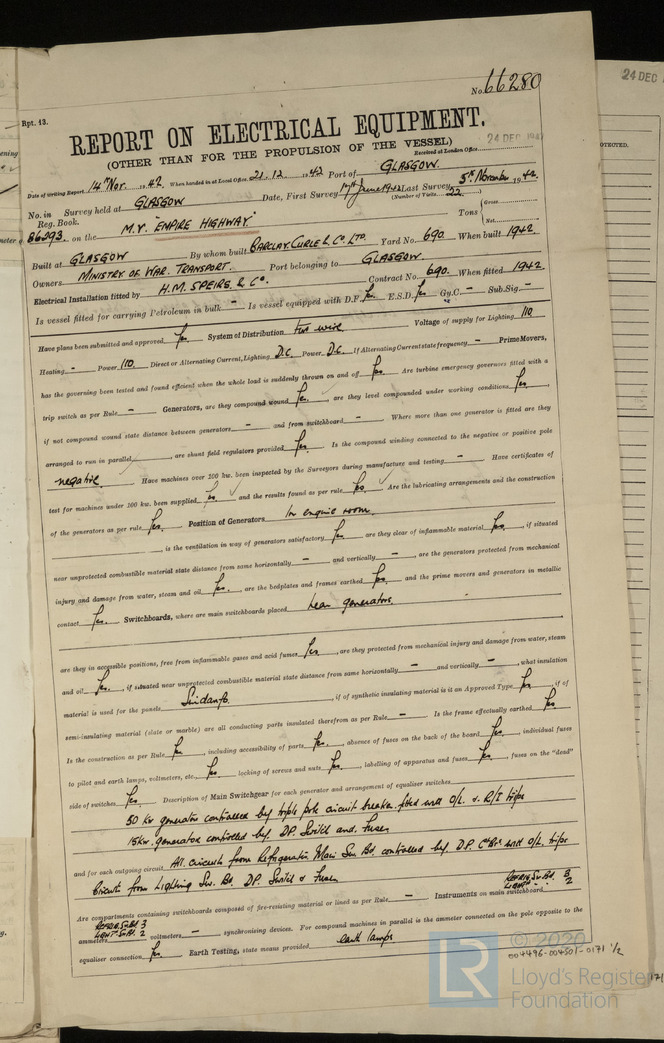 No. 66280
24 DEC
Rpt. 13.
REPORT ON ELECTRICAL EQUIPMENT.
(OTHER THAN FOR THE PROPULSION OF THE VESSEL)
24 DEC 194
Received at London Office
Date of writing Report 14th Nov. 1942. When handed in at Local Office 21. 12. 1942 Port of GLASGOW.
No. in Survey held at GLASGOW Date, First Survey 17th June 1942 Last Survey 5th November 1942
Reg. Book. (Number of Visits 22.)
86293. on the M.V. "EMPIRE HIGHWAY." Tons { Gross Net
Built at GLASGOW By whom built BARCLAY, CURLE & Co. LTD. Yard No. 690. When built 1942.
Owners MINISTRY OF WAR TRANSPORT. Port belonging to GLASGOW.
Electrical Installation fitted by H.M. SPEIRS, & Co. Contract No. 690. When fitted 1942.
Is vessel fitted for carrying Petroleum in bulk - Is vessel equipped with D.F. Yes. E.S.D. Yes Gy.C. - Sub.Sig. -
Have plans been submitted and approved Yes System of Distribution two wire Voltage of supply for Lighting 110
Heating - Power 110. Direct or Alternating Current, Lighting D.C. Power D.C. If Alternating Current state frequency - Prime Movers,
has the governing been tested and found efficient when the whole load is suddenly thrown on and off Yes. Are turbine emergency governors fitted with a
trip switch as per Rule - Generators, are they compound wound Yes. are they level compounded under working conditions Yes,
if not compound wound state distance between generators - and from switchboard - Where more than one generator is fitted are they
arranged to run in parallel, are shunt field regulators provided Yes. Is the compound winding connected to the negative or positive pole
negative. Have machines over 100 kw. been inspected by the Surveyors during manufacture and testing - Have certificates of
test for machines under 100 kw. been supplied yes and the results found as per rule Yes Are the lubricating arrangements and the construction
of the generators as per rule Yes. Position of Generators In engine room.
, is the ventilation in way of generators satisfactory Yes are they clear of inflammable material Yes, if situated
near unprotected combustible material state distance from same horizontally - and vertically -, are the generators protected from mechanical
injury and damage from water, steam and oil Yes., are the bedplates and frames earthed Yes. and the prime movers and generators in metallic
contact Yes. Switchboards, where are main switchboards placed near generators.
are they in accessible positions, free from inflammable gases and acid fumes Yes, are they protected from mechanical injury and damage from water, steam
and oil Yes., if situated near unprotected combustible material state distance from same horizontally - and vertically -, what insulation
material is used for the panels Sindanyo., if of synthetic insulating material is it an Approved Type Yes, if of
semi-insulating material (slate or marble) are all conducting parts insulated therefrom as per Rule - Is the frame effectually earthed Yes.
Is the construction as per Rule Yes, including accessibility of parts Yes., absence of fuses on the back of the board Yes., individual fuses
to pilot and earth lamps, voltmeters, etc. Yes. locking of screws and nuts Yes., labelling of apparatus and fuses Yes., fuses on the "dead"
side of switches Yes. Description of Main Switchgear for each generator and arrangement of equaliser switches
50 kw generator controlled by triple pole circuit breaker fitted with O/L. & R/I trips
15 kw. generator controlled by. D.P. Switch and Fuses
and for each outgoing circuit All circuits from Refrigeration Main Sw. Bd. controlled by D.P. Ct Brs with O/L. trips
Circuits from Lighting Sw. Bd. D.P. Switch & Fuses
Are compartments containing switchboards composed of fire-resisting material or lined as per Rule - Instruments on main switchboard REFRIG. Sw. Bd. 3
LIGHT " " 2
REFRIG. Sw. Bd. 3
LIGHTG Sw. Bd. 2
ammeters voltmeters - synchronising devices. For compound machines in parallel is the ammeter connected on the pole opposite to the
equaliser connection Yes. Earth Testing, state means provided earth lamps
LR
© 2020
Lloyd's Register
Foundation
004496-004501-0171 1/2